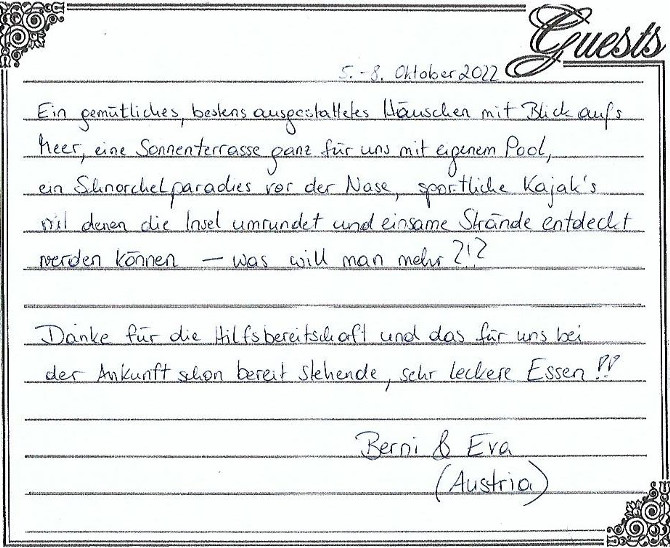 Guests
5.-8. Oktober 2022
Ein gemütliches, bestens ausgestattetes Häuschen mit Blick auf's
Meer, eine Sonnenterrasse ganz für uns mit eigenem Pool,
ein Schnorchelparadies vor der Nase, sportliche Kajak's
mit denen die Insel umrundet und einsame Strände entdeckt
werden können – was will man mehr ?!?
Danke für die Hilfsbereitschaft und das für uns bei
der Ankunft schon bereit stehende, sehr leckere Essen !!
Berni & Eva
(Austria)